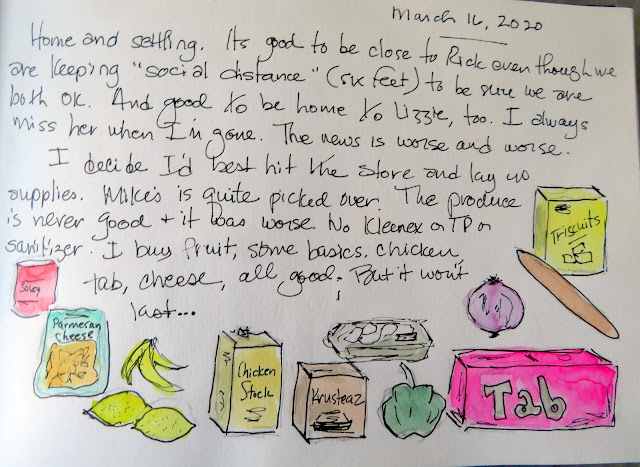 March 16, 2020
Home and settling. Its good to be close to Rick even though we
are keeping "social distance" (six feet) to be sure we are
both OK. And good to be home to Lizzie, too. I always
miss her when I'm gone. The news is worse and worse.
I decide I'd best hit the store and lay up
supplies. Mike's is quite picked over. The produce
is never good + it was worse. No Kleenex or TP or
sanitizer. I buy fruit, some basics. chicken,
tab, cheese, all good. But it won't
last...
Triscuits
Parmesan
Cheese
Chicken
Stock
Krusteaz
Tab